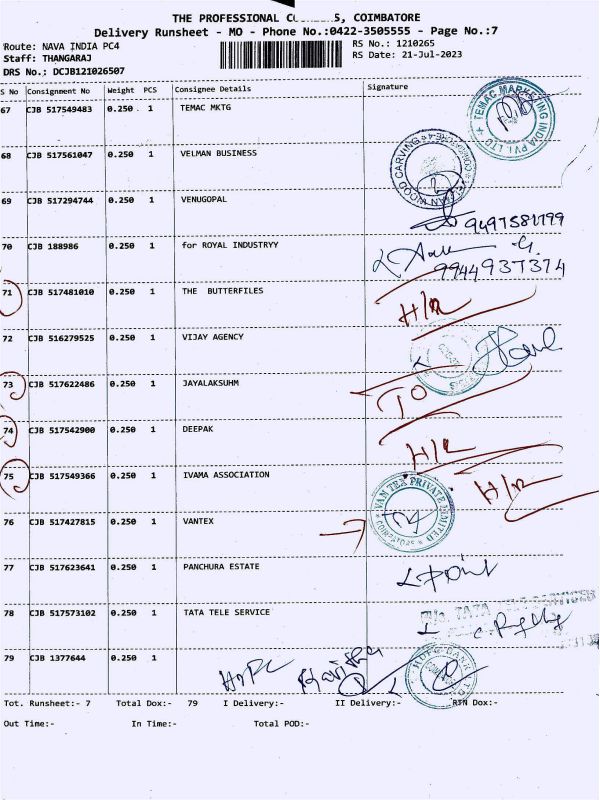 THE PROFESSIONAL COURIERS, COIMBATORE
Delivery Runsheet - MO - Phone No.:0422-3505555 - Page No.:7
Route: NAVA INDIA PC4 RS No.: 1210265
Staff: THANGARAJ RS Date: 21-Jul-2023
DRS No.: DCJB121026507
S No Consignment No Weight PCS Consignee Details Signature
67 CJB 517549483 0.250 1 TEMAC MKTG
TEMAC MARKETING INDIA PVT. LTD
68 CJB 517561047 0.250 1 VELMAN BUSINESS
WOOD CARVING
69 CJB 517294744 0.250 1 VENUGOPAL
9497581799
70 CJB 188986 0.250 1 for ROYAL INDUSTRYY
9944937374
71 CJB 517481010 0.250 1 THE BUTTERFILES
H/R
72 CJB 516279525 0.250 1 VIJAY AGENCY
73 CJB 517622486 0.250 1 JAYALAKSUHM
TO
74 CJB 517542900 0.250 1 DEEPAK
H/R
75 CJB 517549366 0.250 1 IVAMA ASSOCIATION
H/R
76 CJB 517427815 0.250 1 VANTEX
VAN TEX PRIVATE LIMITED
77 CJB 517623641 0.250 1 PANCHURA ESTATE
78 CJB 517573102 0.250 1 TATA TELE SERVICE
TATA
79 CJB 1377644 0.250 1
HDFC
HDFC BANK LTD
Tot. Runsheet:- 7 Total Dox:- 79 I Delivery:- II Delivery:- RTN Dox:-
Out Time:- In Time:- Total POD:-